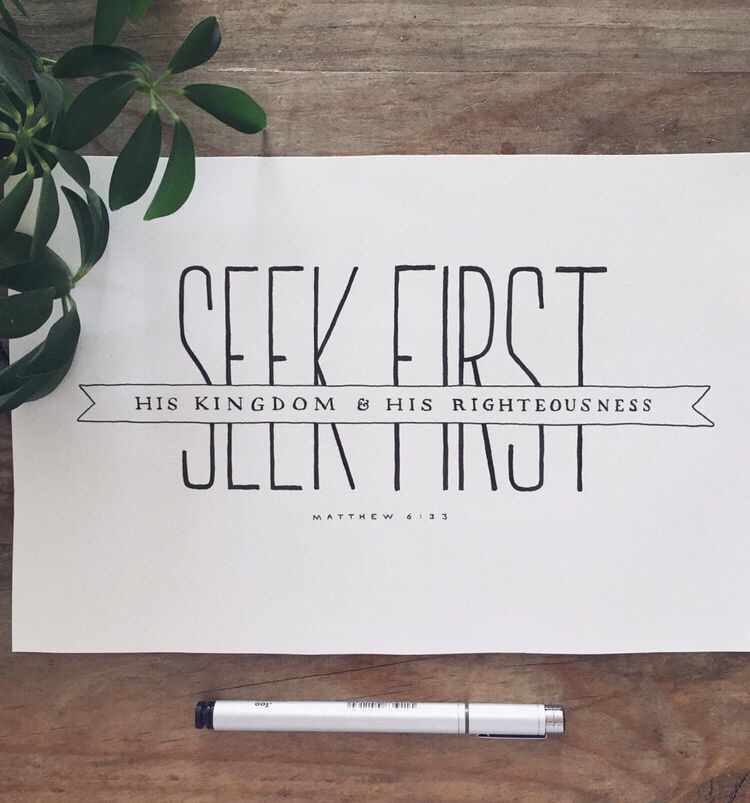 SEEK FIRST
HIS KINGDOM & HIS RIGHTEOUSNESS
MATTHEW 6:33
.Too